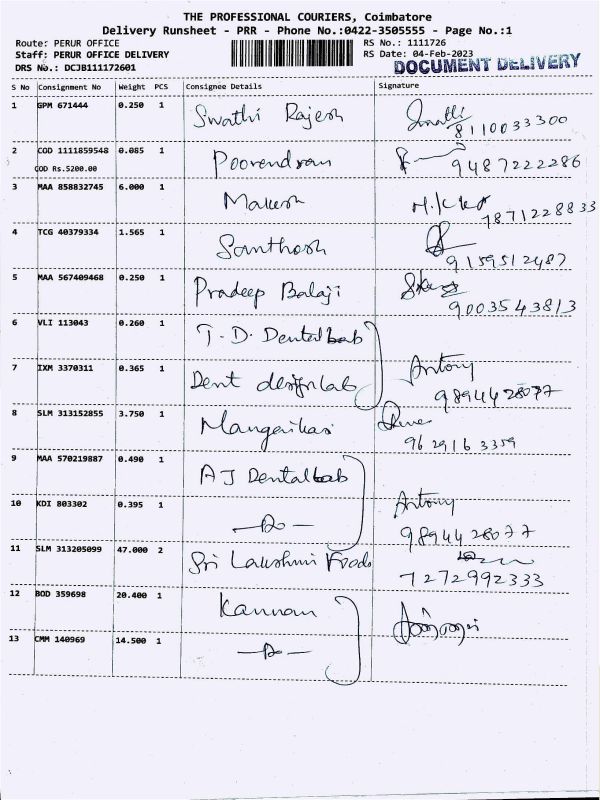 THE PROFESSIONAL COURIERS, Coimbatore
Delivery Runsheet - PRR - Phone No.:0422-3505555 - Page No.:1
Route: PERUR OFFICE
Staff: PERUR OFFICE DELIVERY
DRS No.: DCJB111172601
RS No.: 1111726
RS Date: 04-Feb-2023
DOCUMENT DELIVERY
S No Consignment No Weight PCS Consignee Details Signature
1 GPM 671444 0.250 1 Swathi Rajesh Swathi
8110033300
2 COD 1111859548 0.085 1 Poorendran
COD Rs.5200.00 9487222286
3 MAA 858832745 6.000 1 Makesh
7871228833
4 TCG 40379334 1.565 1 Santhosh
9159512487
5 MAA 567409468 0.250 1 Pradeep Balaji
9003543813
6 VLI 113043 0.260 1 T.D. Dental lab
7 IXM 3370311 0.365 1 Dent design lab Antony
9894428077
8 SLM 313152855 3.750 1
9629163359
9 MAA 570219887 0.490 1 AJ Dental lab
10 KDI 803302 0.395 1 —Do— Antony
9894428077
11 SLM 313205099 47.000 2 Sri Lakshmi Foods
7272992333
12 BOD 359698 20.400 1 Kannan
13 CMM 140969 14.500 1 —Do—